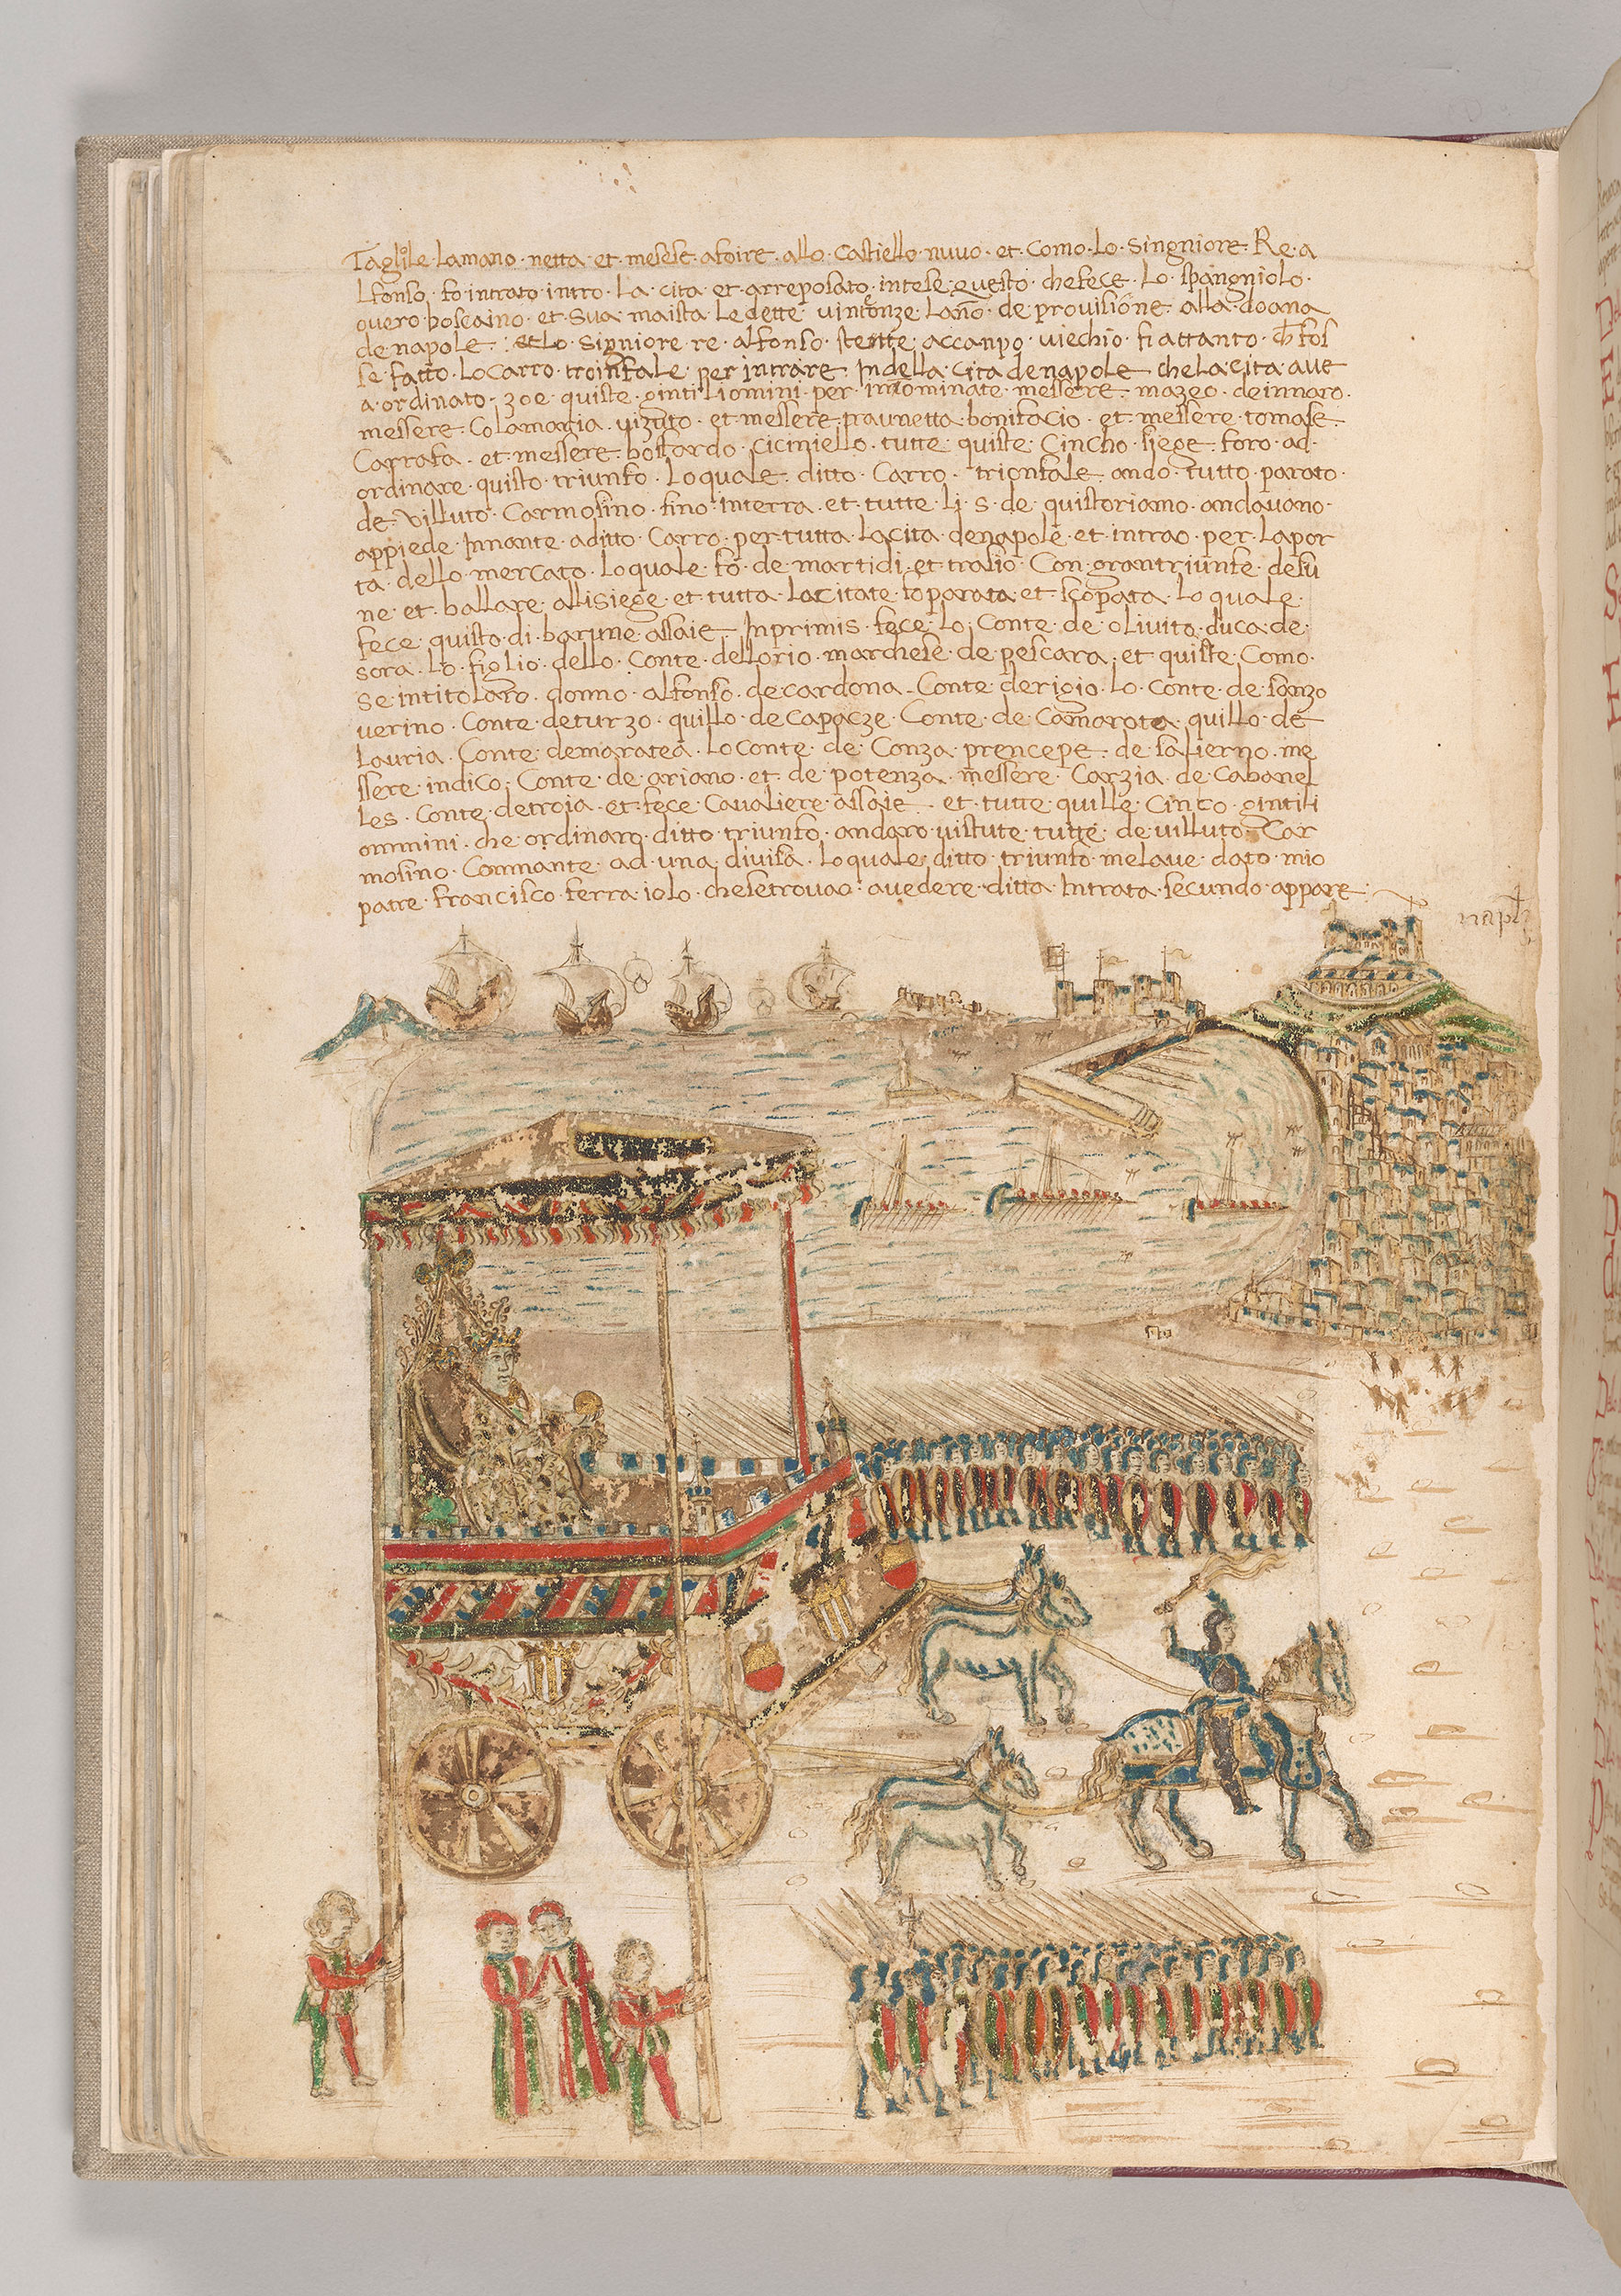 Taglile·lamano·netta·et·mesese·afoire·allo·castiello·nuuo·et·como·lo·singniore·Re·a
lfonso·fo intrato·intro·la·cita·et·arreposato·intese·questo·chefece·lo·spangniolo·
ouero·boscaino·et·Sua·maista·le dette·vintonze·lano·de prouisione·alla·doana
de napole·et·lo·Signiore·re·alfonso·stette·accanpo·uiechio·fi attanto·ch fos
se·fatto·lo carro·troinfale·per intrare·Indella·cita denapole·chela·cita·aue
a·ordinato·zoe·quiste·ginti liomini·per·innominate·messere·mazeo·deinnaro·
messere·Colamaria·et·messere·praunetta·bonifacio·et·messere·tomase·
Carrafa·et·messere·boffardo·ciciniello·tutte·quiste·Cincho·siege·foro·ad·
ordinare·quisto·triunfo·lo quale·ditto·Carro·trionfale·ando·tutto·parato·
de·villuto·Carmosino·fino·interra·et·tutte·li·s·de·quistoriamo·andauano·
appiede·Innante·aditto·Carro·per·tutta·lacita·denapole·et·intrao·per·lapor
ta·dello·mercato·lo quale·fo·de·martidi·et·trasio·Con·gran triunfe·desu
ne·et·ballare·alli siege·et·tutta·la citate·fo parata·et·scopata·lo quale·
fece·quisto·di·barune·assaie·Inprimis·fece·lo·Conte·de·oliuito·duca·de·
sora·lo·figlio·dello·Conte·dellorio·marchese·de·pescara·et·quiste·Como·
se·intitolaro·donno·alfonso·de cardona·Conte·derigio·lo·conte·de·sanzo
uerino·Conte·deturzo·quillo·de capacze·Conte·de·Camarota·quillo·de
lauria·Conte·demaratea·lo conte·de·Conza·prencepe·de·salierno·me
ssere·indico·Conte·de·ariano·et·de·potenza·messere·Carzia·de·Cabanel
les·Conte·detroia·et·fece·Caualiere·assaie·et·tutte·quille·Cinco·gintili
ommini·che·ordinaro·ditto·triunfo·andaro·uistute·tutte·de uilluto·Car
mosino·Commante·ad·una·diuisa·lo quale·ditto·triunfo·melaue·dato·mio
patre·francisco·ferraiolo·chesetrouao·auedere·ditta·Intrata·secundo·appare